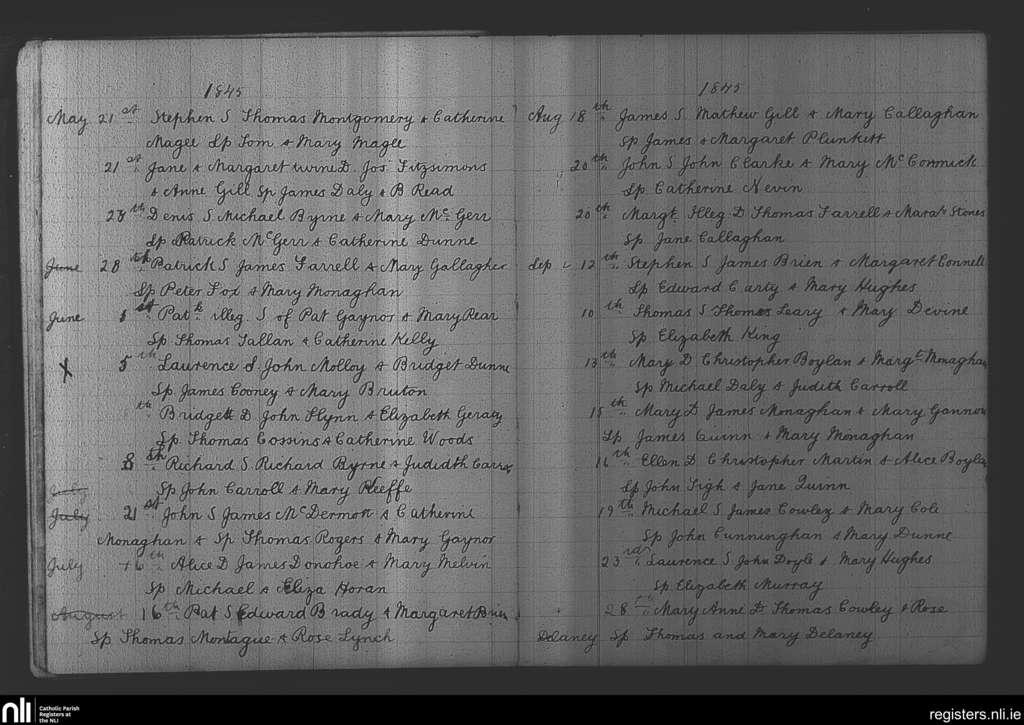 1845
May 21st Stephen S Thomas Montgomery & Catherine
Magee Sp Tom & Mary Magee
21st Jane & Margaret twins D. Jos Fitzsimons
& Anne Gill Sp James Daly & B Read
28th Denis S Michael Byrne & Mary McGerr
Sp Patrick McGerr & Catherine Dunne
June 28th Patrick S James Farrell & Mary Gallagher
Sp Peter Fox & Mary Monaghan
June 1st Patk illeg. S of Pat Gaynor & Mary Rear
Sp Thomas Fallan & Catherine Kelly
X 5th Laurence S John Molloy & Bridget Dunne
Sp James Cooney & Mary Bruton
th Bridget D John Flynn & Elizabeth Geraty
Sp Thomas Cossins & Catherine Woods
8th Richard S Richard Byrne & Judidth
July Sp John Carroll & Mary Keeffe
July 21st John S James McDermott & Catherine
Monaghan & Sp Thomas Rogers & Mary Gaynor
July 16th Alice D James Donohoe & Mary Melvin
Sp Michael & Eliza Horan
August 16th Pat S Edward Brady & Margaret Brien
Sp Thomas Montague & Rose Lynch
1845
Aug 18th James S. Mathew Gill & Mary Callaghan
Sp James & Margaret Plunkett
20th John S John Clarke & Mary McCormick
Sp Catherine Nevin
20th Margt. Illeg D Thomas Farrell & Stones
Sp Jane Callaghan
Sep 12th Stephen S James Brien & Margaret Connell
Sp Edward Carty & Mary Hughes
10th Thomas S Thomas Leary & Mary Devine
Sp Elizabeth King
13th Mary D Christopher Boylan & Margt Monaghan
Sp Michael Daly & Judith Carroll
15th Mary D James Monaghan & Mary Gannon
Sp James Quinn & Mary Monaghan
16th Ellen D Christopher Martin & Alice Boylan
Sp John Tigh & Jane Quinn
19th Michael S James Cowley & Mary Cole
Sp John Cunninghan & Mary Dunne
23rd Laurence S John Doyle & Mary Hughes
Sp Elizabeth Murray
28th Mary Anne D Thomas Cowley & Rose
Delaney Sp Thomas and Mary Delaney
nli
Catholic Parish
Registers at
the NLI
registers.nli.ie